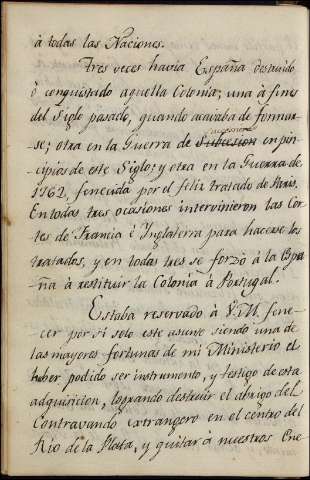 à todas las Naciones.
Tres veces havia España destruido
ò conquistado aquella Colonia; una à fines
del Siglo pasado, quando acavaba de formar-
se; otra en la Guerra de Subcesion en prin-
cipios de este Siglo; y otra en la Guerra de
1762, fenecida por el feliz tratado de Paris.
En todas tres ocasiones intervinieron las Cor-
tes de Francia è Ynglaterra para hacerse los
tratados, y en todas tres se forzò à la Espa-
ña à restituir la Colonia à Portugal.
Estaba reservado à V.M. fene-
cer por si solo este asunto siendo una de
las mayores fortunas de mi Ministerio el
haber podido ser instrumento, y testigo de esta
adquisicion, logrando destruir el abrigo del
Contravando extrangero en el centro del
Rio de la Plata, y quitar à nuestros Ene-